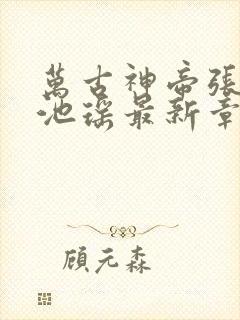 萬古神帝張
池瑤最新章
顧元森